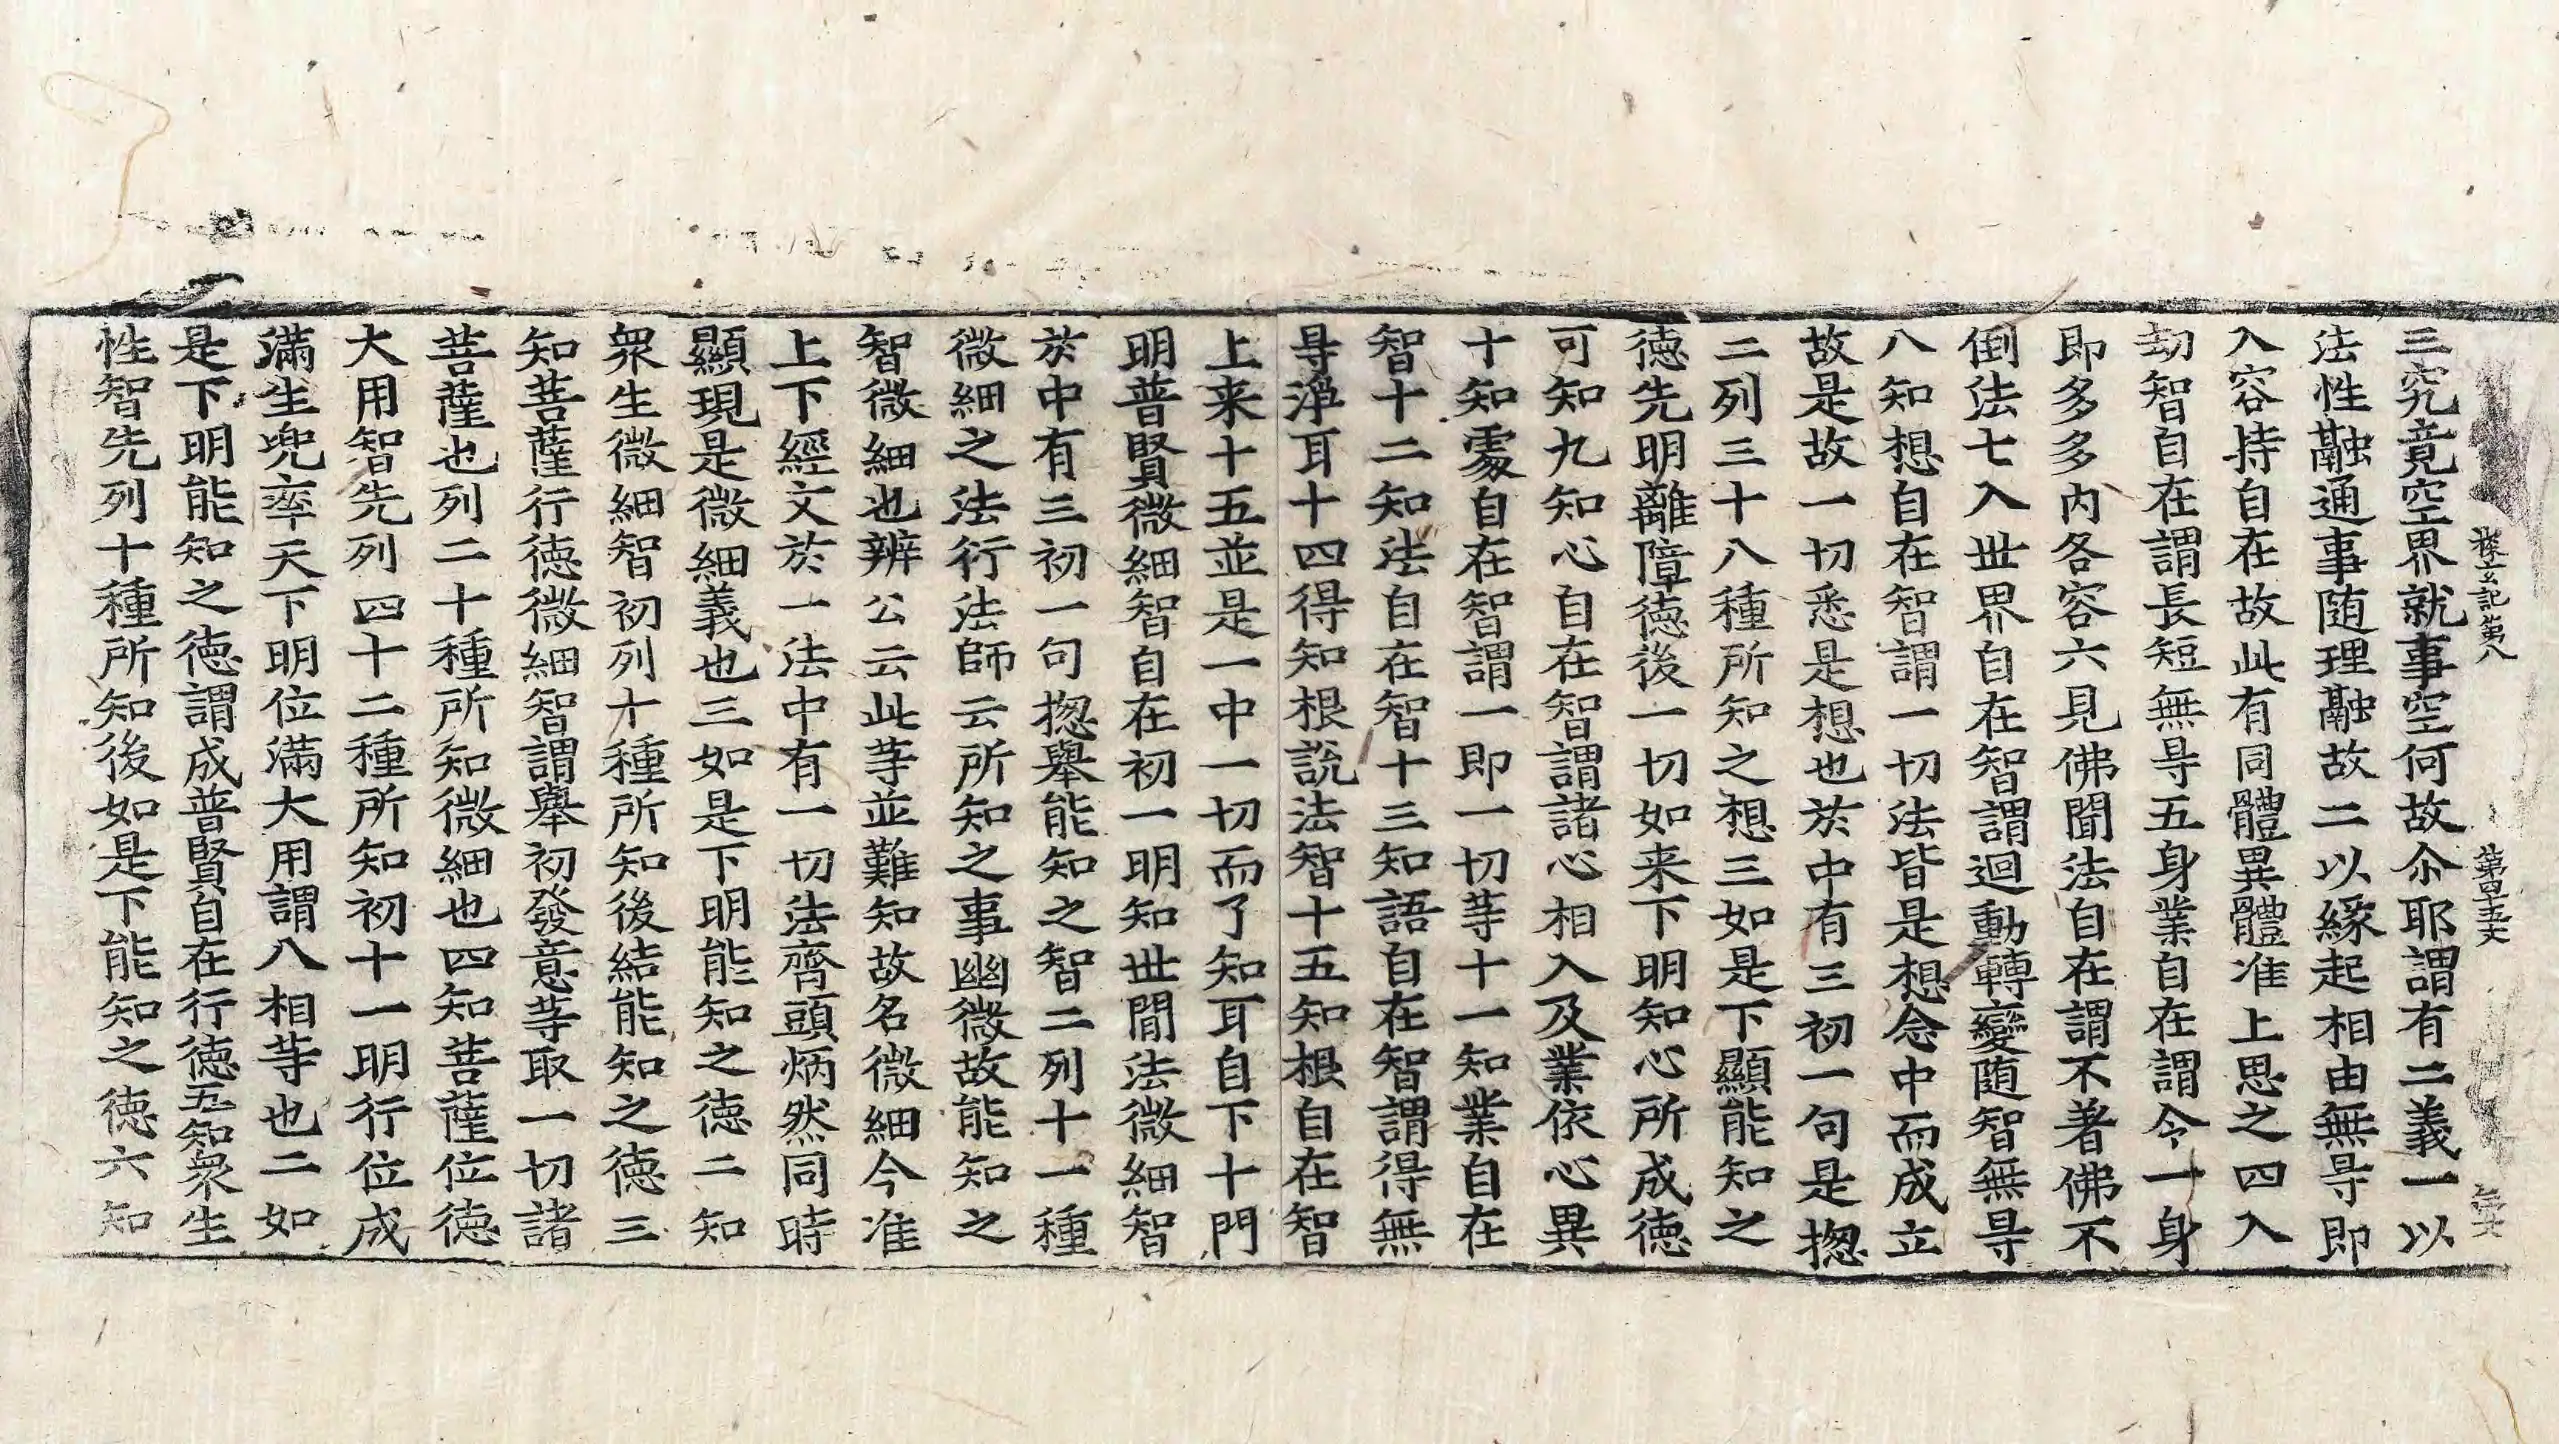 探玄記第八 第四十五丈
三究竟空界就事空何故尒耶謂有二義一以
法性融通事随理融故二以緣起相由無㝵即
入容持自在故此有同體異體准上思之四入
劫智自在謂長短無㝵五身業自在謂令一身
即多多內各容六見佛聞法自在謂不著佛不
倒法七入世界自在智謂迴動轉變随智無㝵
八知想自在智謂一切法皆是想念中而成立
故是故一切悉是想也於中有三初一句是揔
二列三十八種所知之想三如是下顯能知之
徳先明離障徳後一切如来下明知心所成徳
可知九知心自在智謂諸心相入及業依心異
十知䖏自在智謂一即一切等十一知業自在
智十二知法自在智十三知語自在智謂得無
㝵淨耳十四得知根說法智十五知根自在智
上来十五並是一中一切而了知耳自下十門
明普賢微細智自在初一明知世間法微細智
於中有三初一句揔舉能知之智二列十一種
微細之法行法師云所知之事幽微故能知之
智微細也辨公云此等並難知故名微細今准
上下經文於一法中有一切法齊頭炳然同時
顯現是微細義也三如是下明能知之徳二知
衆生微細智初列十種所知後結能知之徳三
知菩薩行徳微細智謂舉初發意等取一切諸
菩薩也列二十種所知微細也四知菩薩位徳
大用智先列四十二種所知初十一明行位成
滿生兜率天下明位滿大用謂八相等也二如
是下明能知之徳謂成普賢自在行徳五知衆生
性智先列十種所知後如是下能知之徳六知